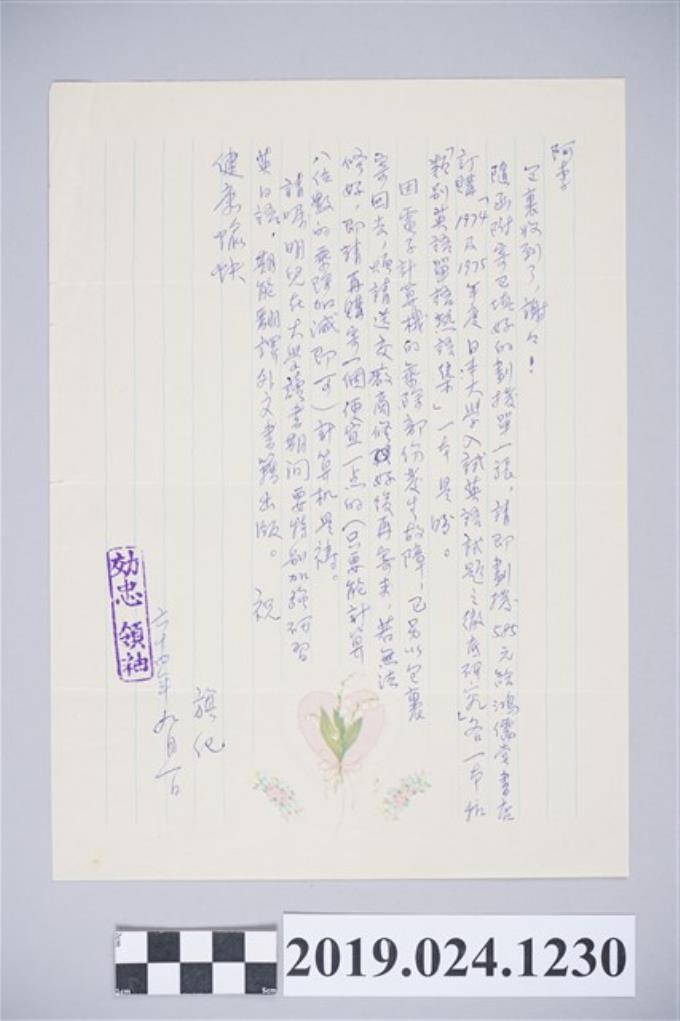 阿李
包裹收到了,謝々!
隨函附寄已填好的劃撥單一張,請即劃撥585元給鴻儒堂書店
訂購「1974及1975年度日本大學入試英語試題之徹底研究」各一本和
「類別英語單語熟語集」一本是盼。
因電子計算機的乘除部份發生故障,已另以包裹
寄回去,煩請送交廠商修好後再寄來,若無法
修好,即請再購寄一個便宜一点的(只要能計算
八位數的乘除加減即可)計算机是禱。
請囑明兒在大學讀書期间要特别加強研習
英日語,期能翻譯外文書籍出版。 祝
健康愉快
旗化
六十四年九月一日
効忠領袖
2019.024.1230
0cm 5cm